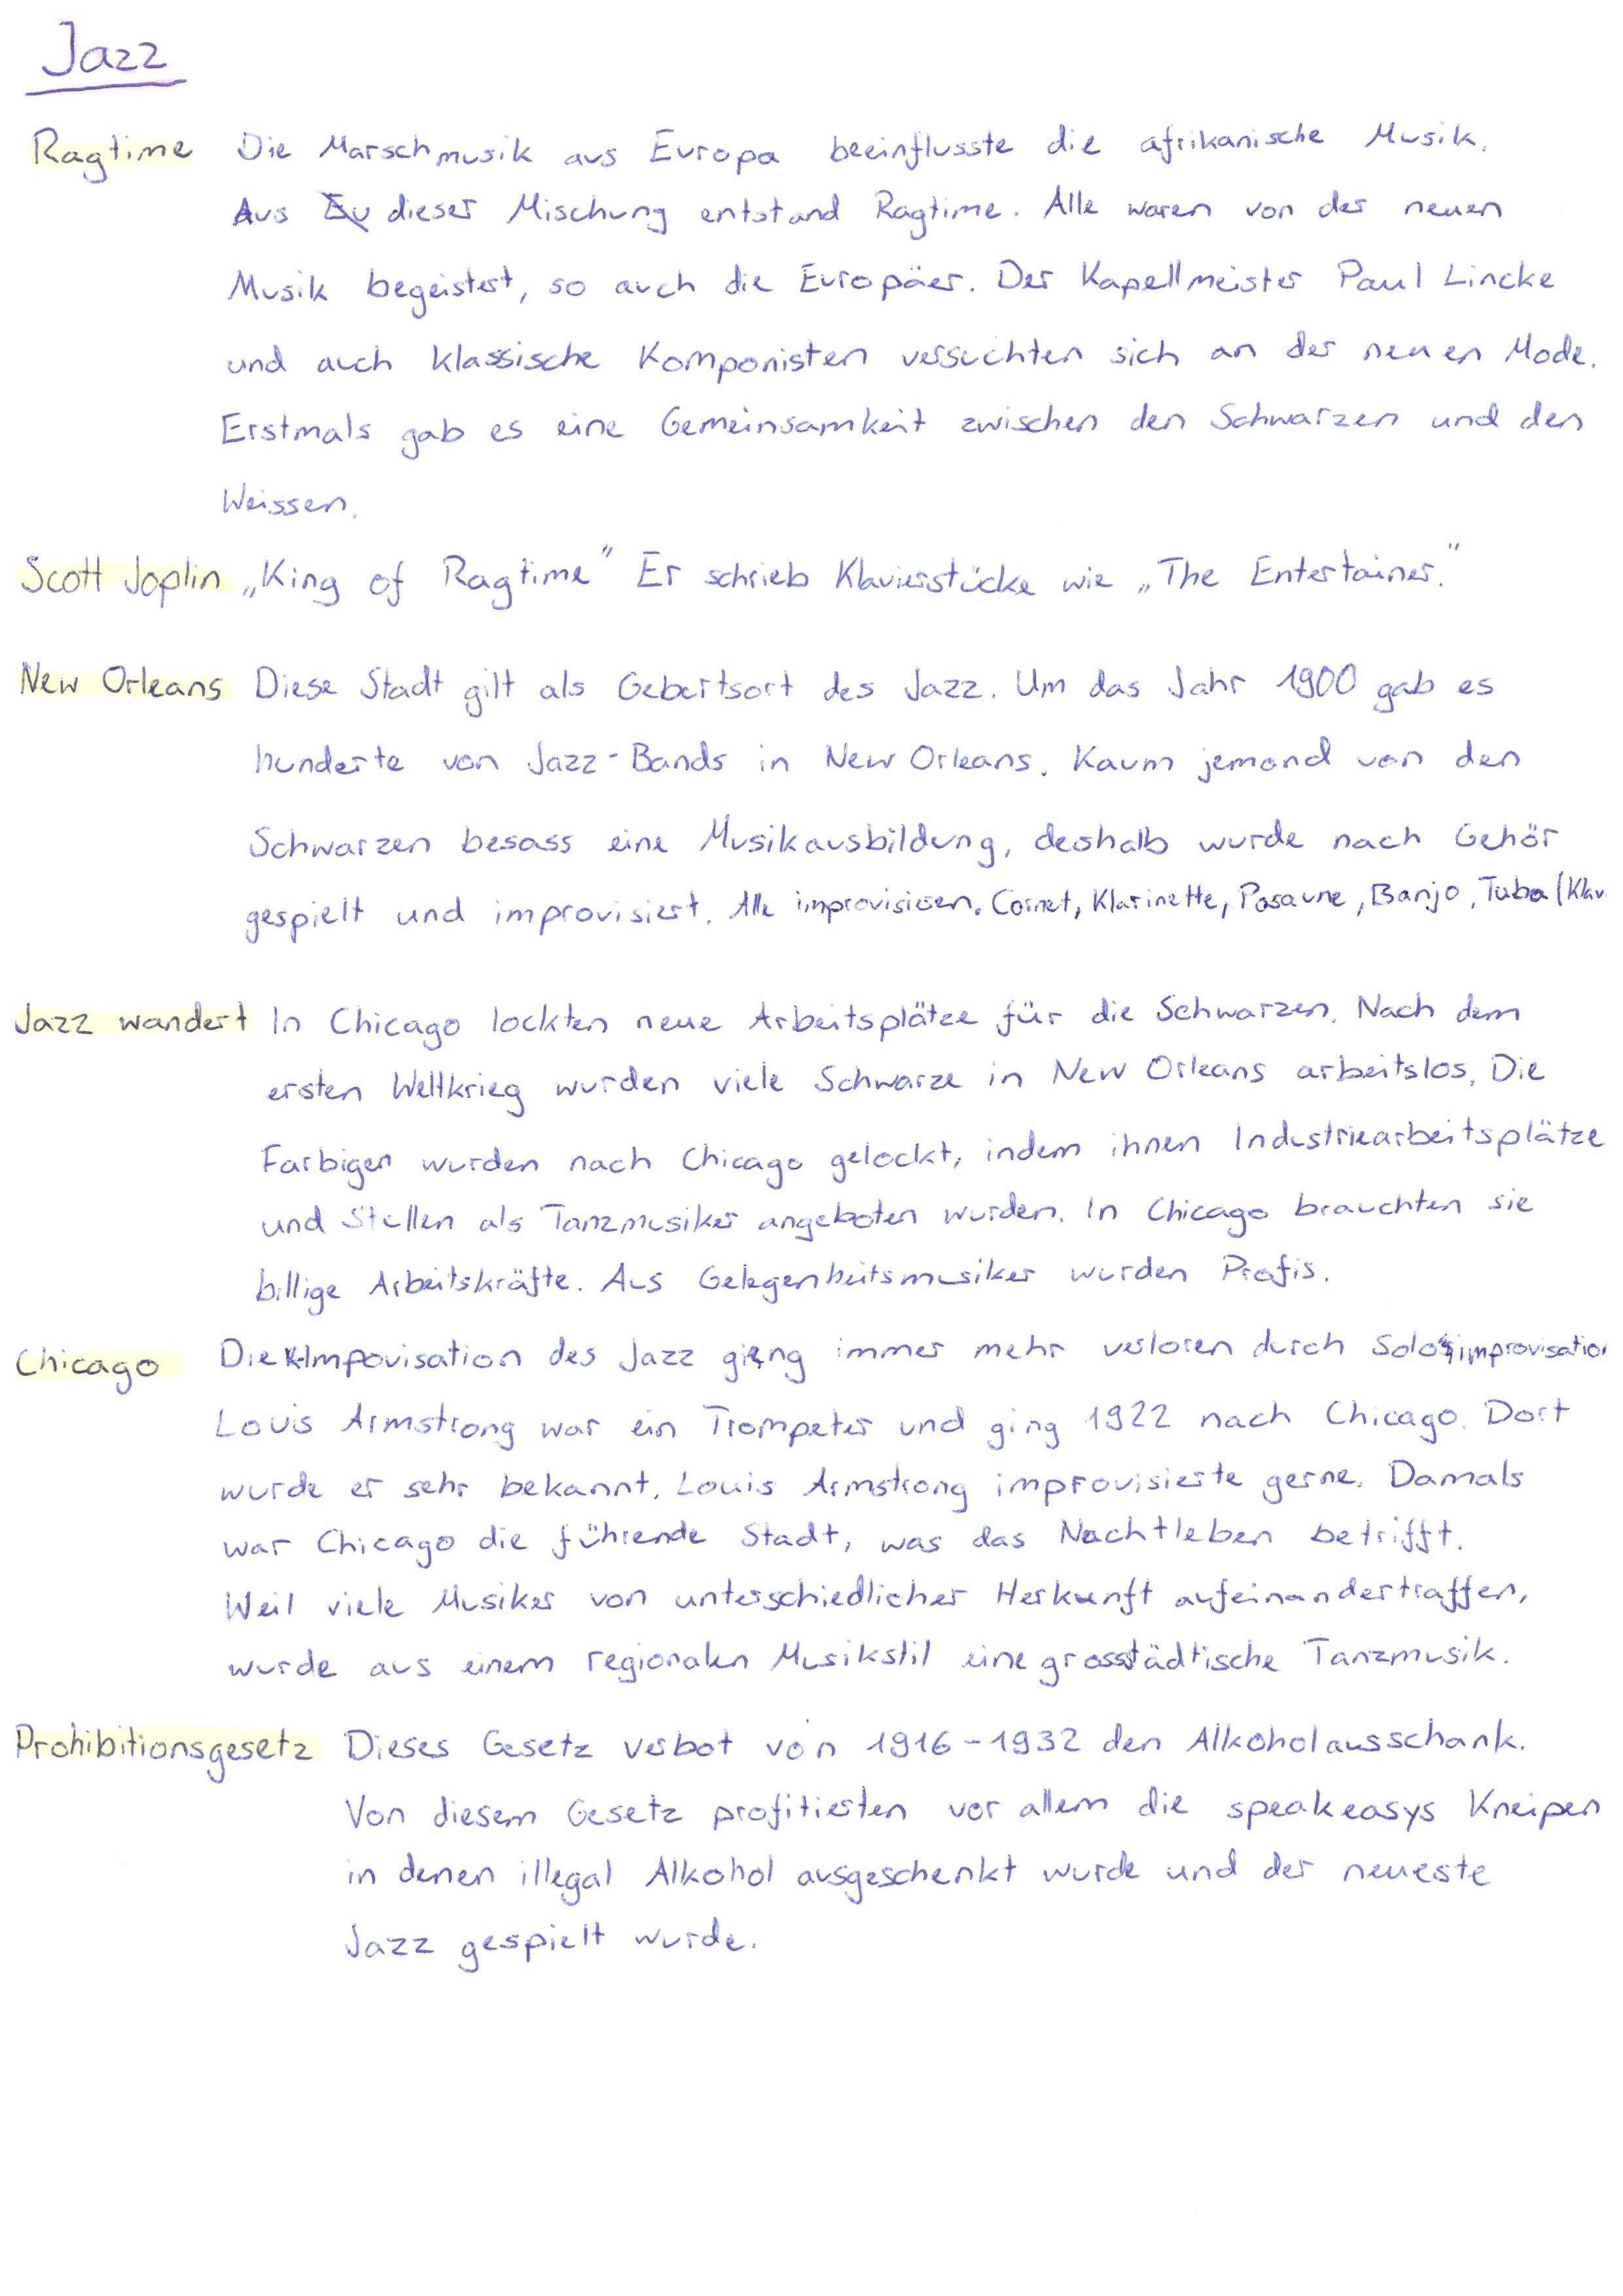 Jazz
Ragtime Die Marschmusik aus Europa beeinflusste die afrikanische Musik.
Aus Eu dieser Mischung entstand Ragtime. Alle waren von der neuen
Musik begeistert, so auch die Europäer. Der Kapellmeister Paul Lincke
und auch klassische Komponisten versuchten sich an der neuen Mode.
Erstmals gab es eine Gemeinsamkeit zwischen den Schwarzen und den
Weissen.
Scott Joplin „King of Ragtime" Er schrieb Klavierstücke wie „The Entertainer."
New Orleans Diese Stadt gilt als Gebertsort des Jazz. Um das Jahr 1900 gab es
hunderte von Jazz-Bands in New Orleans. Kaum jemand von den
Schwarzen besass eine Musikausbildung, deshalb wurde nach Gehör
gespielt und improvisiert. Alle improvisieren. Cornet, Klarinette, Posaune, Banjo, Tuba (Klav
Jazz wandert In Chicago lockten neue Arbeitsplätze für die Schwarzen. Nach dem
ersten Weltkrieg wurden viele Schwarze in New Orleans arbeitslos. Die
Farbigen wurden nach Chicago gelockt, indem ihnen Industriearbeitsplätze
und Stellen als Tanzmusiker angeboten wurden. In Chicago brauchten sie
billige Arbeitskräfte. Aus Gelegenheitsmusiker wurden Profis.
Chicago Die Impovisation des Jazz ging immer mehr verloren durch Soloimprovisation
Louis Armstrong war ein Trompeter und ging 1922 nach Chicago. Dort
wurde er sehr bekannt. Louis Armstrong improvisierte gerne. Damals
war Chicago die führende Stadt, was das Nachtleben betrifft.
Weil viele Musiker von unterschiedlicher Herkunft aufeinandertraffen,
wurde aus einem regionalen Musikstil eine grossstädtische Tanzmusik.
Prohibitionsgesetz Dieses Gesetz verbot von 1916-1932 den Alkoholausschank.
Von diesem Gesetz profitierten vor allem die speakeasys Kneipen
in denen illegal Alkohol ausgeschenkt wurde und der neueste
Jazz gespielt wurde.